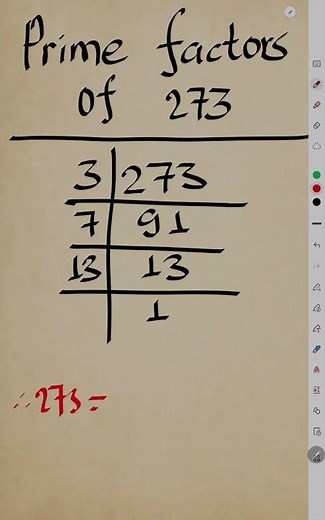 Prime factors
Of 273
3 273
7 91
13 13
1
∴ 273 =